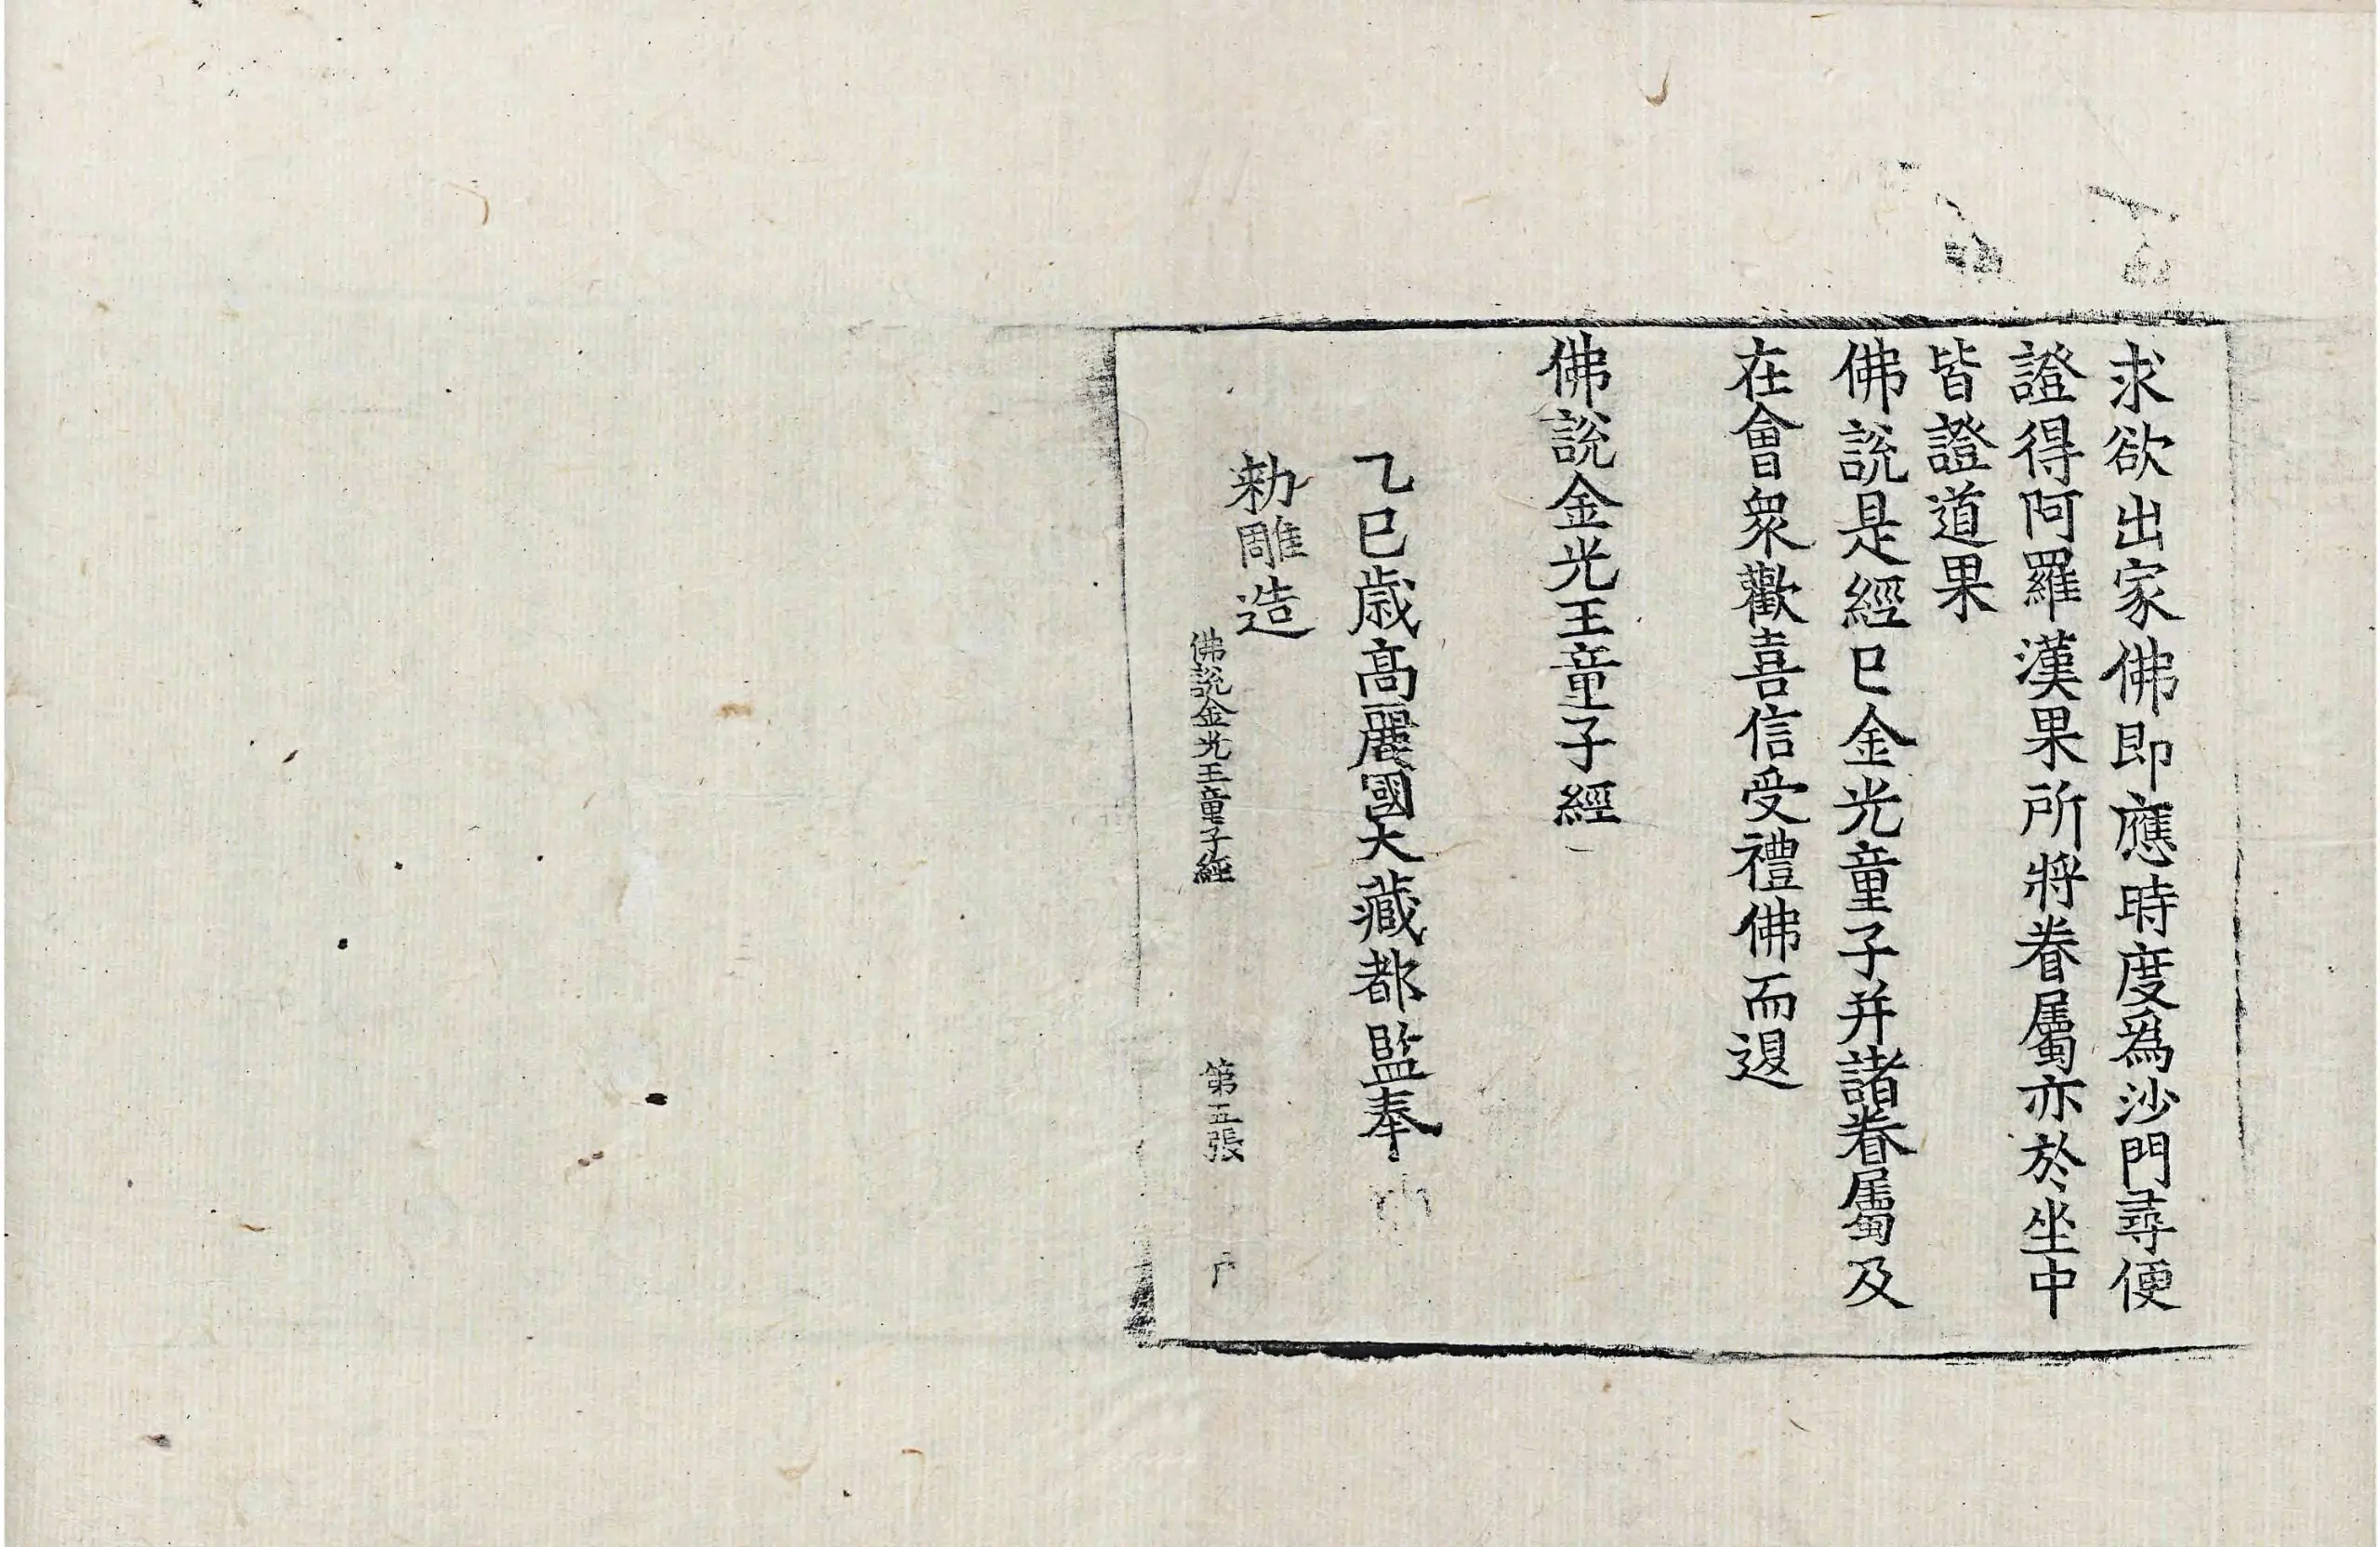 求欲出家佛即應時度爲沙門尋便
證得阿羅漢果所將眷屬亦於坐中
皆證道果
佛說是經巳金光童子并諸眷屬及
在會衆歡喜信受禮佛而退
佛說金光王童子經
乙巳歲高麗國大藏都監奉
勑雕造
佛說金光王童子經 第五張